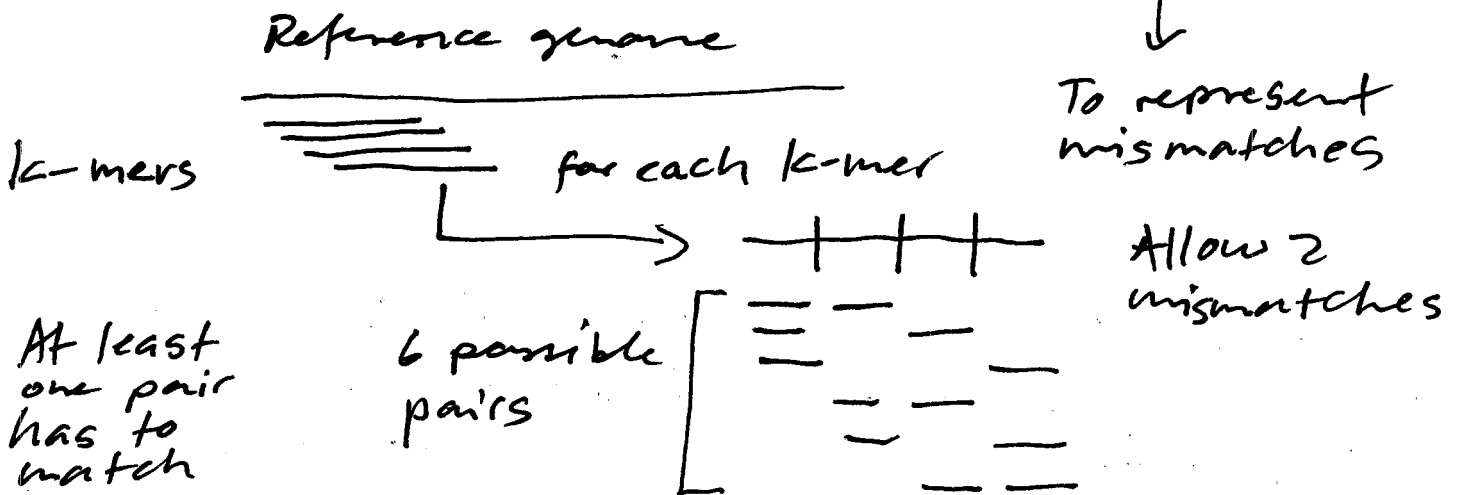 Reference genome
To represent
mismatches
k-mers
for each k-mer
Allow 2
mismatches
At least
one pair
has to
match
6 possible
pairs